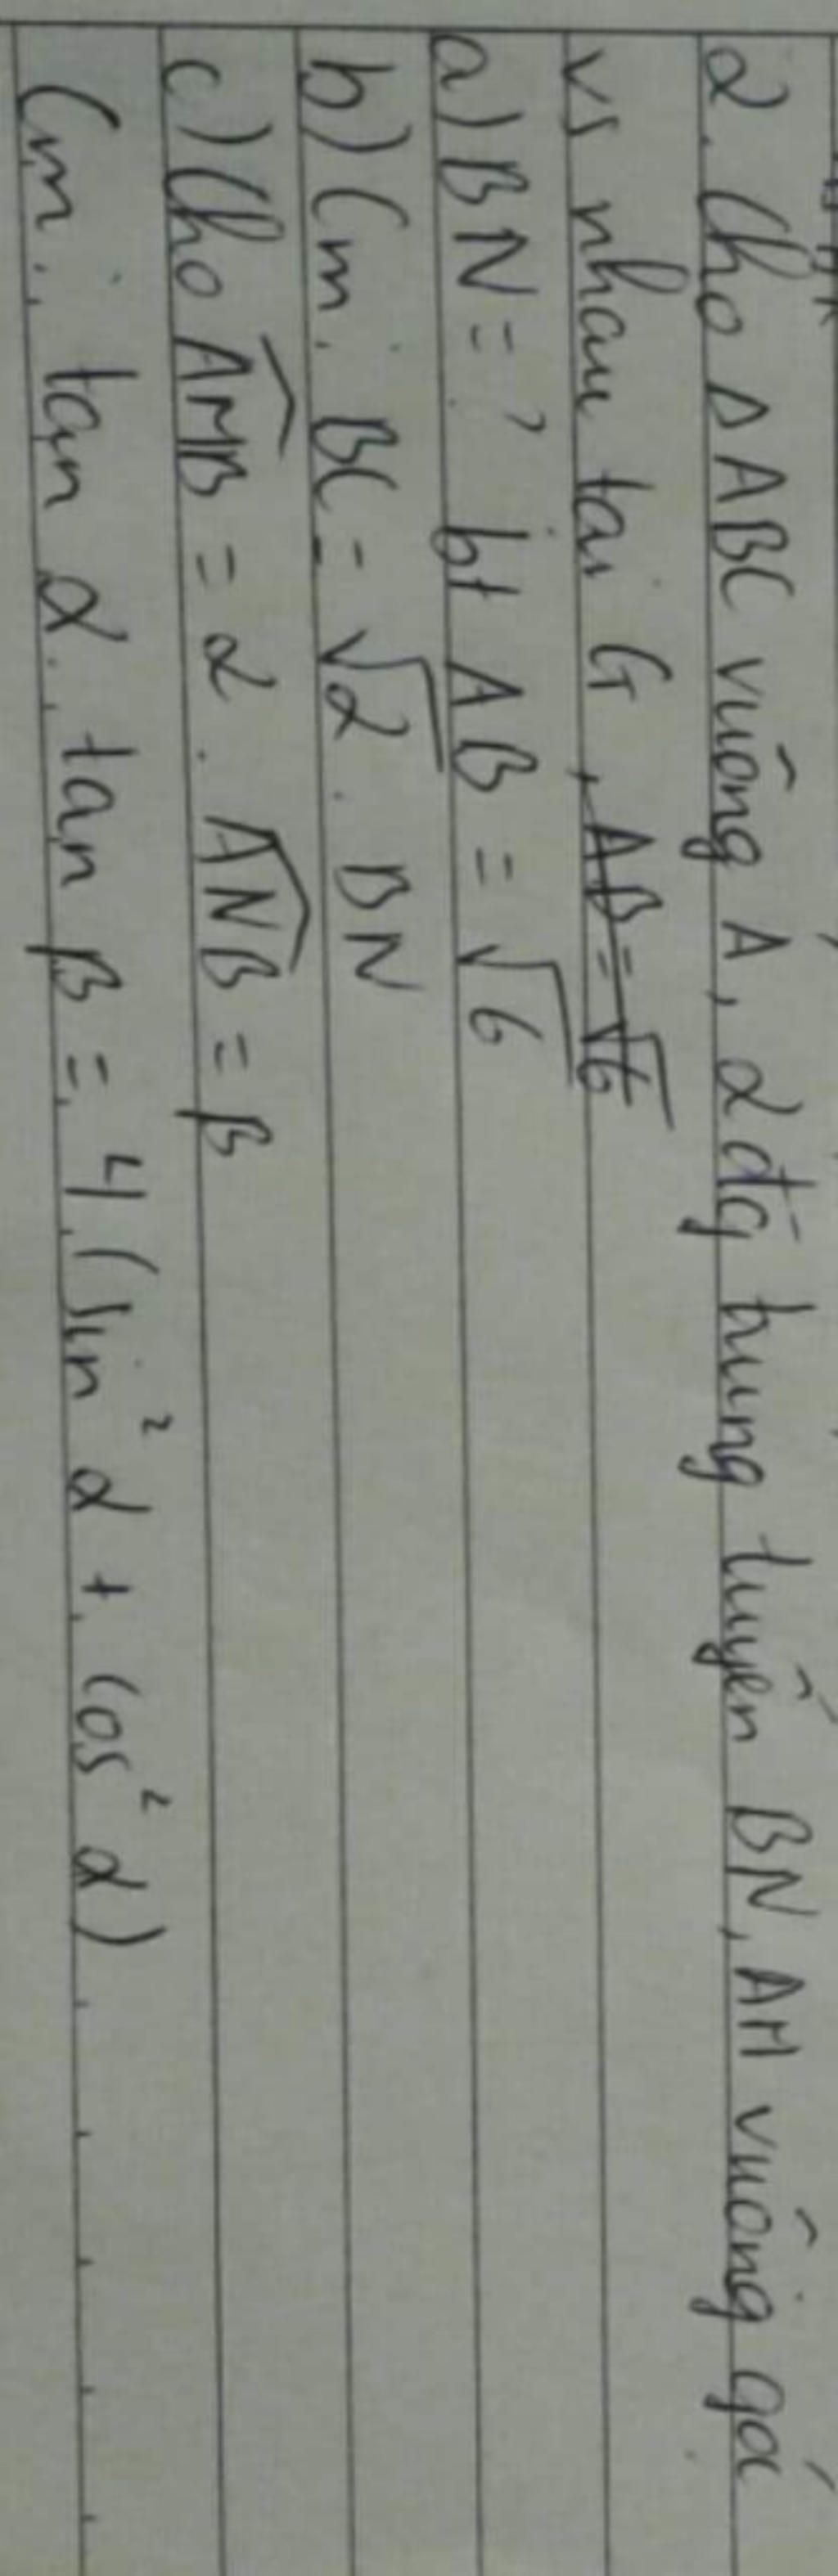 2. Cho Δ ABC vuông A, 2 đg trung tuyến BN, AM vuông góc
vs nhau tại G, AB = √6
a) BN = ? bt AB = √6
b) Cm: BC = √2 . BN
c) Cho AMB = α . ANB = β
Cm: tan α . tan β = 4 (sin² α + cos² α)